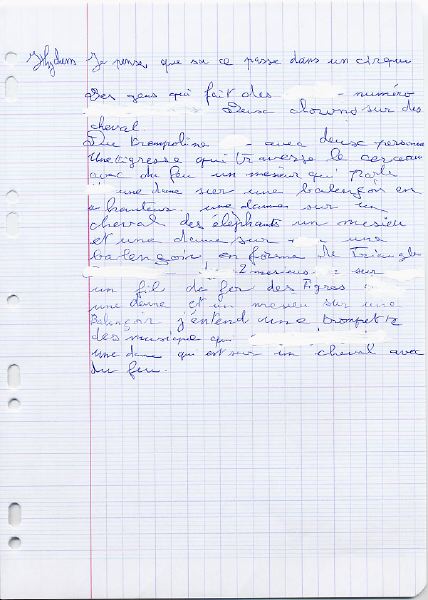 Je pense que sa ce passe dans un cirque
Des gens qui fait des - numéro
Deux clowns sur des
cheval.
Du trompoline - avec deux personne
Une tigresse qui traverse le cerceau
avec du feu un mesieur qui parle
une dame sur une balençon en
hauteur. une dame sur un
cheval des éléphants un mesieu
et une dame sur - une
balençon en forme de Triangle
2 mesieus sur
un fil de fer des Tigres
une dame et un mesieu sur une
Balençon j'entend une trompette
des musique qui
une dame qui est sur un cheval avec
du feu.